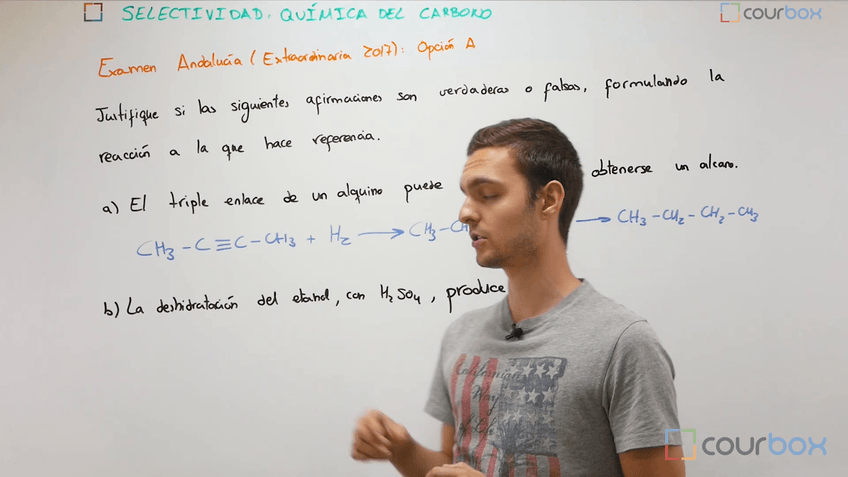 SELECTIVIDAD. QUÍMICA DEL CARBONO
courbox
Examen Andalucía (Extraordinaria 2017): Opción A
Justifique si las siguientes afirmaciones son verdaderas o falsas, formulando la
reacción a la que hace referencia.
a) El triple enlace de un alquino puede obtenerse un alcano.
CH3-C≡C-CH3 + H2 → CH3-CH → CH3-CH2-CH2-CH3
b) La deshidratación del etanol, con H2SO4, produce
Californian
Way
of Life
courbox